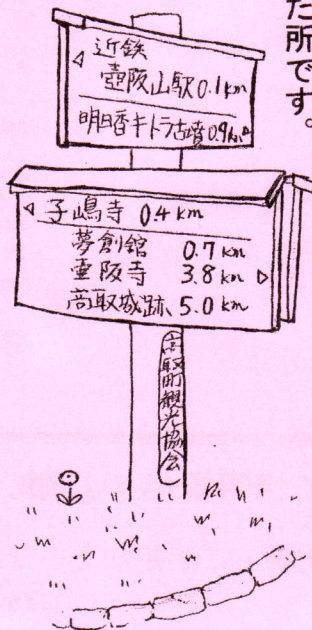 た所です。
◁ 近鉄
壺阪山駅 0.1km
明日香キトラ古墳 0.9km
◁ 子嶋寺 0.4km
夢創館 0.7km
壷阪寺 3.8km ▷
高取城跡 5.0km
高取町観光協会